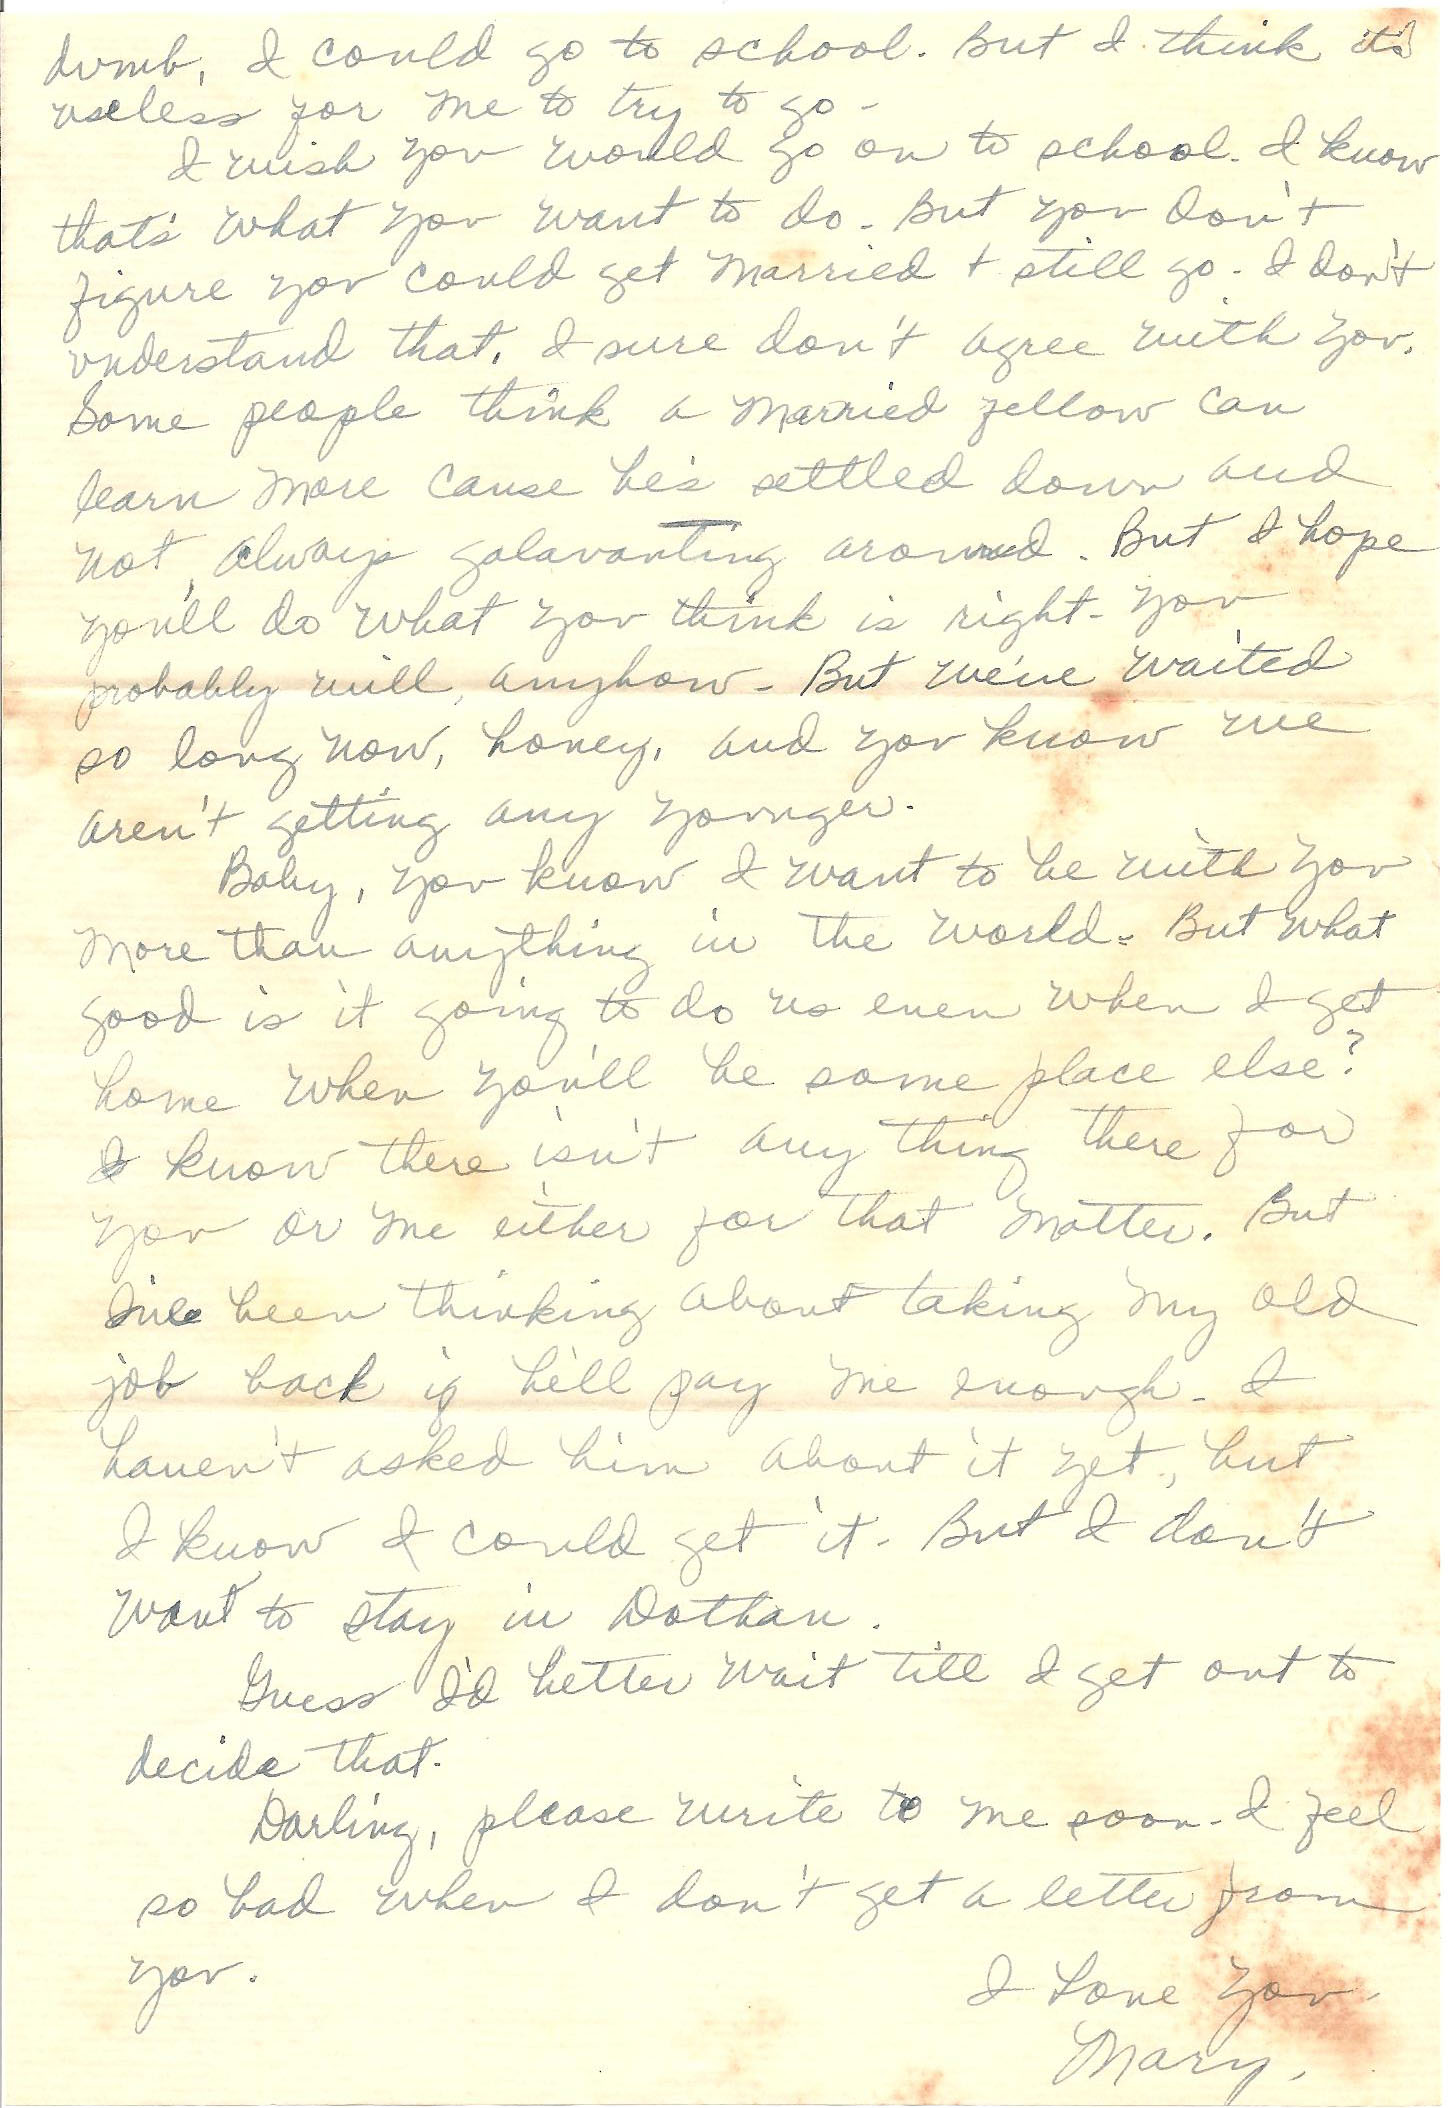 dumb, I could go to school. But I think its
useless for me to try to go -
I wish you would go on to school. I know
that's what you want to do. But you don't
figure you could get married + still go. I don't
understand that. I sure don't agree with you.
Some people think a married fellow can
learn more cause he's settled down and
not always galavanting around. But I hope
you'll do what you think is right. You
probably will, anyhow. But we've waited
so long now, honey, and you know we
aren't getting any younger.
Baby, you know I want to be with you
more than anything in the world. But what
good is it going to do us even when I get
home when you'll be some place else?
I know there isn't any thing there for
you or me either for that matter. But
I've been thinking about taking my old
job back if he'll pay me enough. I
haven't asked him about it yet, but
I know I could get it. But I don't
want to stay in Dothan.
Guess I'd better wait till I get out to
decide that.
Darling, please write to me soon. I feel
so bad when I don't get a letter from
you.
I Love You.
Mary.